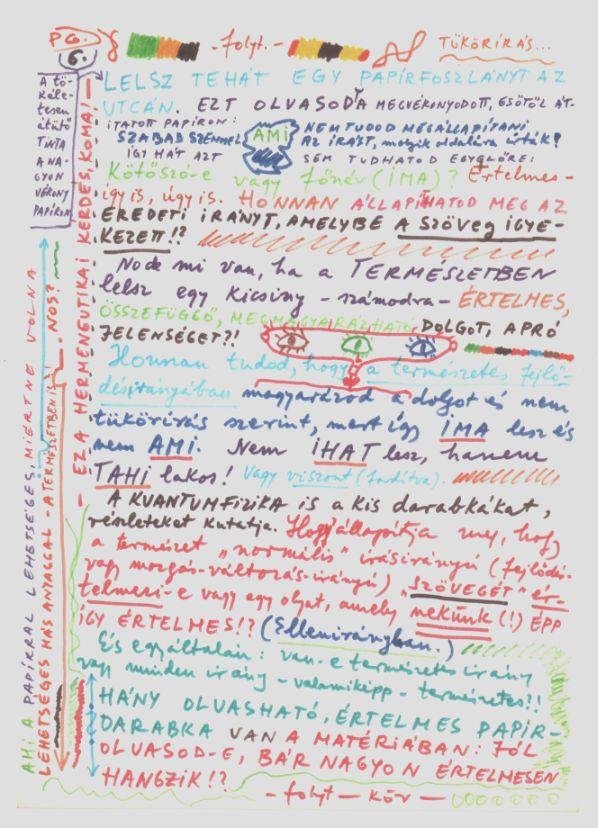 PG. 6. - folyt. - TÜKÖRÍRÁS...
LELSZ TEHÁT EGY PAPÍRFOSZLÁNYT AZ
UTCÁN. EZT OLVASOD A MEGVÉKONYODOTT, ESŐTŐL ÁT-
ITATOTT PAPÍRON: AMI NEM TUDOD MEGÁLLAPÍTANI
SZABAD SZEMMEL AZ ÍRÁST, melyik oldalára írták!
ÍGY HÁT AZT SEM TUDHATOD EGYELŐRE:
KÖTŐSZÓ-e vagy főnév (IMA)? Értelmes-
így is, úgy is. HONNAN ÁLLAPÍTHATOD MEG AZ
EREDETI IRÁNYT, AMELYBE A SZÖVEG IGYE-
KEZETT!?
No de mi van, ha a TERMÉSZETBEN
lelsz egy kicsiny - számodra - ÉRTELMES,
ÖSSZEFÜGGŐ, MEGMAGYARÁZHATÓ DOLGOT, APRÓ
JELENSÉGET?!
Honnan tudod, hogy a természetes fejlő-
désirányában magyarázod a dolgot és nem
tükörírás szerint, mert így IMA lesz és
nem AMI. Nem IHAT lesz, hanem
TAHI lakos! Vagy viszont (fordítva).
A KVANTUMFIZIKA is a kis darabkákat,
részleteket kutatja. Hogy állapítja meg, hogy
a természet „normális" írásirányú (fejlődés-
vagy mozgás-változás-irányú) „SZÖVEGÉT" ér-
telmezi-e vagy egy olyat, amely nekünk (!) ÉPP
ÍGY ÉRTELMES!? (Ellenirányban.)
És egyáltalán: van-e természetes irány
vagy minden irány - valamiképp - természetes?!
HÁNY OLVASHATÓ, ÉRTELMES PAPÍR-
DARABKA VAN A MATÉRIÁBAN: JÓL
OLVASOD-E, BÁR NAGYON ÉRTELMESEN
HANGZIK!?
- folyt - köv -
A TÖ-
KÉLE-
TESEN
ÁTÜTŐ
TINTA
A NA-
GYON
VÉKONY
PAPÍRON
- EZ A HERMENEUTIKAI KÉRDÉS, KOMA! -
AMI A PAPÍRRAL LEHETSÉGES, MIÉRT NE VOLNA
LEHETSÉGES MÁS ANYAGGAL - A TERMÉSZETBEN IS? ... NOS?